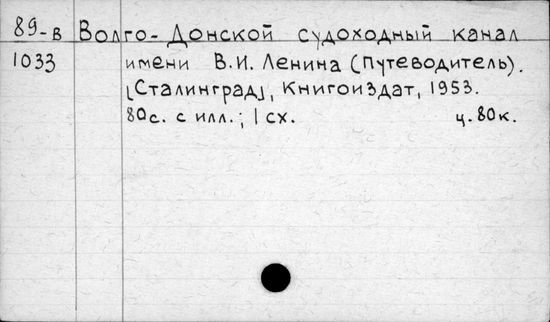 89-в Волго-Донской судоходный канал
1033 имени В.И. Ленина (Путеводитель).
[Сталинград], Книгоиздат, 1953.
80с. с илл.; 1 сх. ц. 80к.